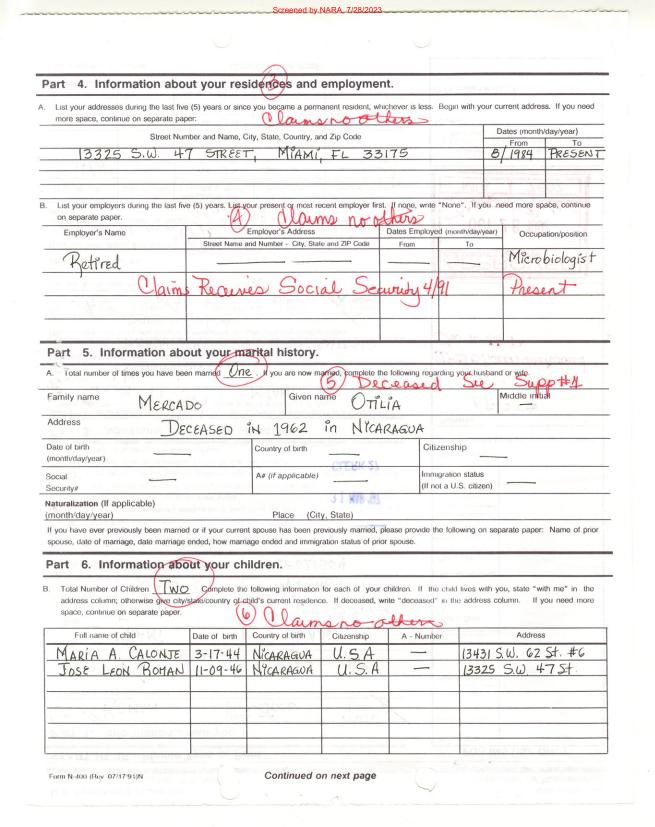 Screened by NARA, 7/28/2023
Part 4. Information about your residences and employment.
3
A. List your addresses during the last five (5) years or since you became a permanent resident, whichever is less. Begin with your current address. If you need
more space, continue on separate paper:
Claims no others
Street Number and Name, City, State, Country, and Zip Code
Dates (month/day/year)
From To
13325 S.W. 47 STREET, MIAMI, FL 33175 8/1984 PRESENT
B. List your employers during the last five (5) years. List your present or most recent employer first. If none, write "None". If you need more space, continue
on separate paper.
4 Claims no others
Employer's Name Employer's Address Dates Employed (month/day/year) Occupation/position
Street Name and Number - City, State and ZIP Code From To
Retired Microbiologist
Claims Receives Social Security 4/91 Present
Part 5. Information about your marital history.
A. Total number of times you have been married One . If you are now married, complete the following regarding your husband or wife.
5 Deceased See Supp #1
Family name MERCADO Given name OTILIA Middle initial —
Address DECEASED IN 1962 in NICARAGUA
Date of birth
(month/day/year) — Country of birth — Citizenship —
Social
Security# — A# (if applicable) — Immigration status
(If not a U.S. citizen) —
Naturalization (If applicable)
(month/day/year) Place (City, State)
If you have ever previously been married or if your current spouse has been previously married, please provide the following on separate paper: Name of prior
spouse, date of marriage, date marriage ended, how marriage ended and immigration status of prior spouse.
Part 6. Information about your children.
B. Total Number of Children TWO Complete the following information for each of your children. If the child lives with you, state "with me" in the
address column; otherwise give city/state/country of child's current residence. If deceased, write "deceased" in the address column. If you need more
space, continue on separate paper.
6 Claims no others
Full name of child Date of birth Country of birth Citizenship A - Number Address
MARIA A. CALONJE 3-17-44 NICARAGUA U.S.A — 13431 S.W. 62 St. #6
JOSE LEON ROMAN 11-09-46 NICARAGUA U.S.A — 13325 S.W. 47 St.
Form N-400 (Rev 07/17/91)N Continued on next page